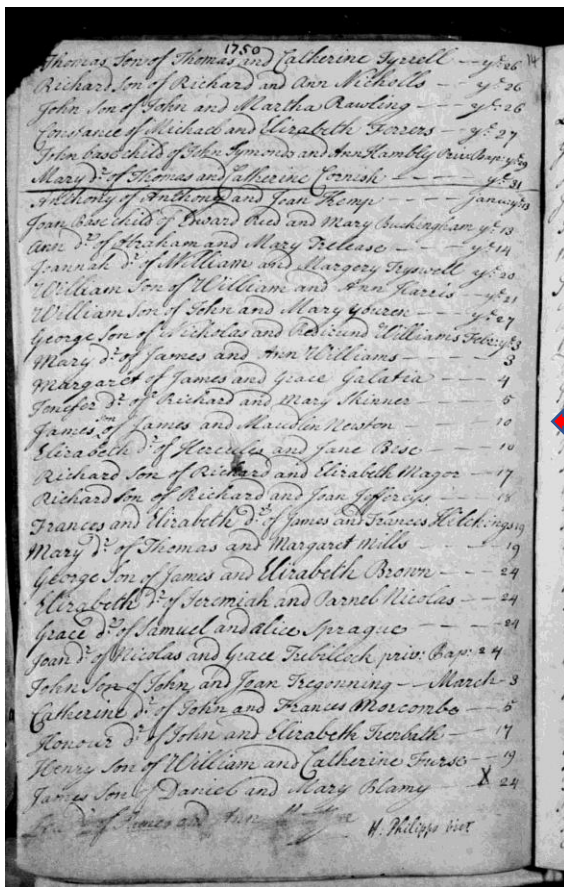 1750
14
Thomas Son of Thomas and Catherine Tyrrell -- ye 26
Richard Son of Richard and Ann Nicholls - ye 26
John Son of John and Martha Rawling --- ye 26
Constance of Michael and Elizabeth Ferrers -- ye 27
John base child of John Symonds and Ann Hambly Priv: Bap: ye 29
Mary Dr. of Thomas and Catherine Cornish -- ye 31
Anthony of Anthony and Joan Kemp --- January ye 13
Joan Base child of Edward Ried and Mary Buckingham ye 13
Ann Dr. of Abraham and Mary Trelease --- ye 14
Joannah Dr. of William and Margery Tryswell ye 20
William Son of William and Ann Harris -- ye 21
William Son of John and Mary Yburen -- ye 27
George Son of Nicholas and Redigund Williams Febry ye 3
Mary Dr. of James and Ann Williams --- 3
Margaret of James and Grace Galatia --- 4
Jenefer Dr. of Richard and Mary Skinner -- 5
James son of James and Maudlin Newton --- 10
Elizabeth Dr. of Hercules and Jane Bise --- 10
Richard Son of Richard and Elizabeth Magor -- 17
Richard Son of Richard and Joan Jefferys -- 18
Frances and Elizabeth Drs. of James and Frances Hitchings 19
Mary Dr. of Thomas and Margaret Mills --- 19
George Son of James and Elizabeth Brown --- 24
Elizabeth Dr. of Jeremiah and Parnel Nicolas -- 24
Grace Dr. of Samuel and alice Sprague --- 24
Joan Dr. of Nicolas and Grace Trebilcock priv: Bap: 24
John Son of John and Joan Tregonning --- March - 3
Catherine Dr. of John and Frances Morcombe -- 5
Honour Dr. of John and Elizabeth Trenbath -- 17
Henry Son of William and Catherine Furse -- 19
James Son of Daniel and Mary Blamy --- X 24
Dr. of James and Ann
H. Philipps vicr